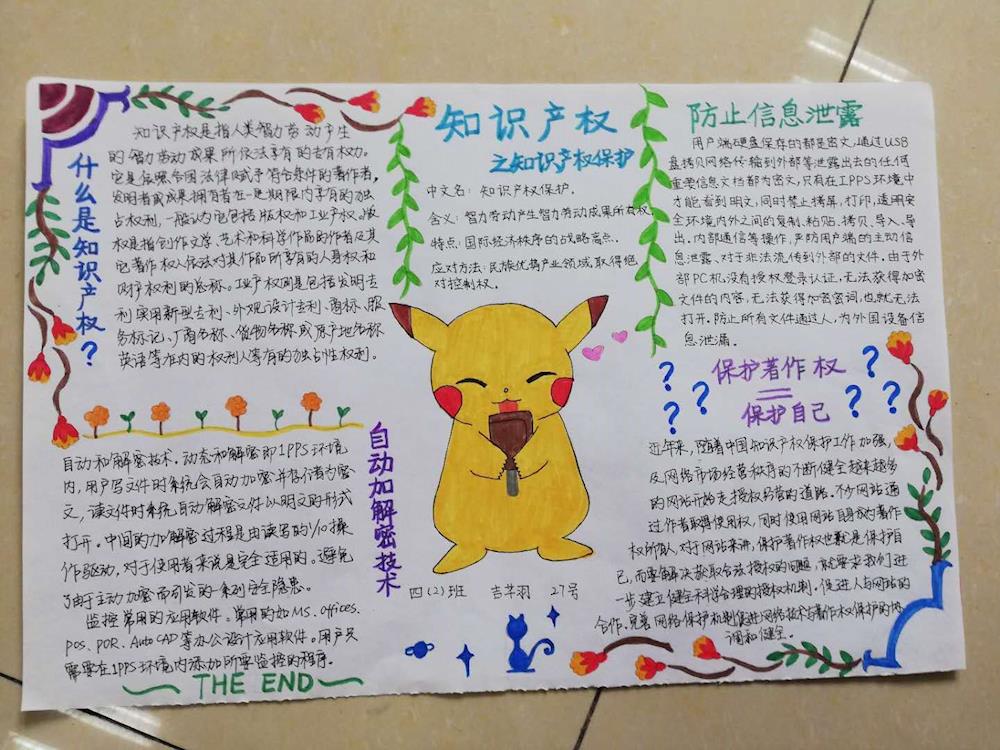 知识产权
之知识产权保护
中文名：知识产权保护.
含义：智力劳动产生智力劳动成果所有权.
特点：国际经济秩序的战略高点.
应对方法：民族优势产业领域，取得绝
对控制权.
什么是知识产权？
知识产权是指人类智力劳动产生
的智力劳动成果所依法享有的专有权力。
它是依照各国法律赋予符合条件的著作者，
发明者或成果拥有者在一定期限内享有的独
占权利，一般认为它包括版权和工业产权。版
权是指创作文学、艺术和科学作品的作者及其
它著作权人依法对其作品所享有的人身权和
财产权利的总称。工业产权则是包括发明专
利、实用新型专利、外观设计专利、商标、服
务标记、厂商名称、货物名称或原产地名称
英语等在内的权利人享有的独占性权利。
防止信息泄露
用户端硬盘保存的都是密文，通过USB
盘拷贝网络传输到外部等泄露出去的任何
重要信息文档都为密文，只有在IPPS环境中
才能看到明文，同时禁止拷屏，打印，适用安
全环境内外之间的复制、粘贴、拷贝、导入、导
出、内部通信等操作，严防用户端的主动信
息泄露、对于非法流传到外部的文件，由于外
部PC机没有授权登录认证，无法获得加密
文件的内容，无法获得加密密词，也就无法
打开。防止所有文件通过人，为外国设备信
息泄漏。
自动加解密技术
自动和解密技术。动态和解密即IPPS环境
内，用户写文件时系统会自动加密并拷作者为密
文，读文件时系统自动解密文件以明文的形式
打开。中间的加解密过程是由读写的I/O操
作驱动，对于使用者来说是完全适用的。避免
了由于主动加密而引发的一系列安全隐患。
监控常用的应用软件。常用的如MS. offices.
POS、PDR、Auto CAD等办公设计应用软件。用户只
需要在IPPS环境内添加所要监控的程序。
THE END
保护著作权
=
保护自己
? ? ? ? ? ?
近年来，随着中国知识产权保护工作加强，
及网络市场经营秩序的不断健全越来越多
的网站开始走授权经营的道路。不少网站通
过作者取得使用权，同时使用网站自身成为著作
权所有人，对于网站来讲，保护著作权也就是保护自
己，而要解决获取合法授权的问题，就要求我们进
一步建立健全科学合理的授权机制，促进人与网站的
合作。完善网络保护机制促进网络技术与著作权保护的协
调和健全。
四(2)班 吉芊羽 27号